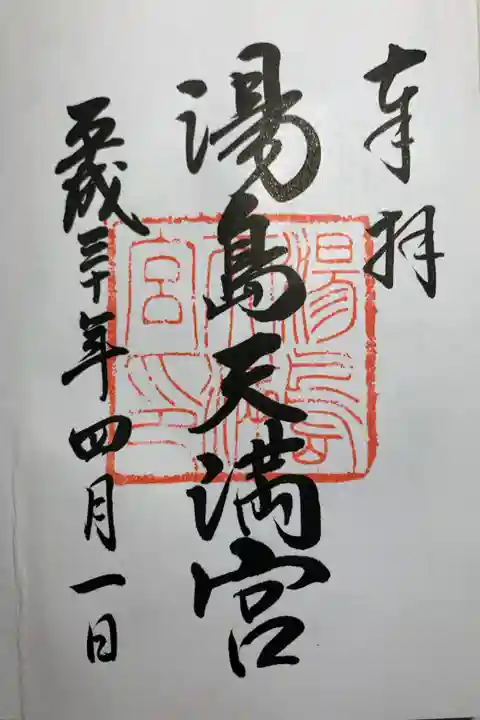 奉拝
湯島天満宮
湯島天満宮之印
平成三十年四月一日